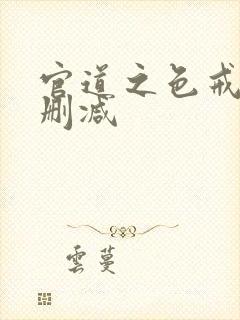 官道之色戒
删减
雲蔓